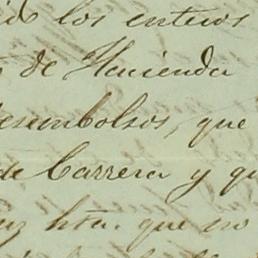 los enteros
de Hacienda
desembolsos, que
de Carrera y qu
hta. que no